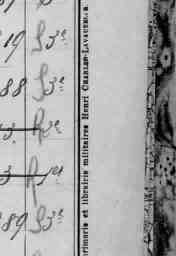 19 S 3e
88 S 3e
3. R 3e
3 R 1er
89 S 3e
primerie et librairie militaires Henri CHARLES-LAVAUZELLE